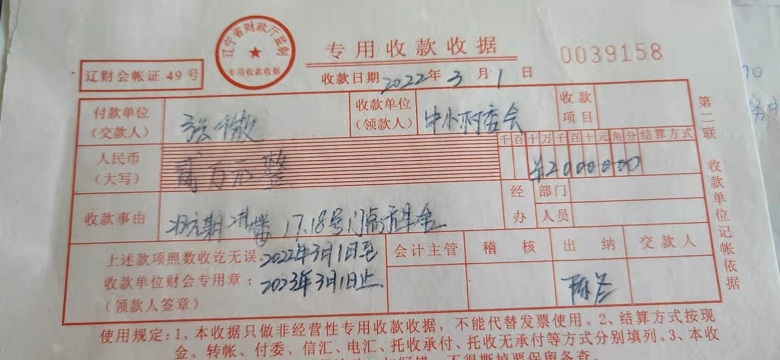 辽宁省财政厅监制
专用收款收据
专用收款收据
0039158
辽财会帐证 49 号
收款日期 2022年 3 月 1 日
付款单位
(交款人)
收款单位
(领款人)
村委会
收款
项目
人民币
(大写)
贰百元整
千百十万千百十元角分
结算方式
收款事由
17.18号门
经办
部门
人员
上述款项照数收讫无误
2022年3月1日至
收款单位财会专用章:
2023年3月1日止
(领款人签章)
会计主管
稽核
出纳
交款人
第二联 收款单位记帐依据
使用规定:1、本收据只做非经营性专用收款收据,不能代替发票使用。2、结算方式按现
金、转帐、付委、信汇、电汇、托收承付、托收无承付等方式分别填列。3、本收